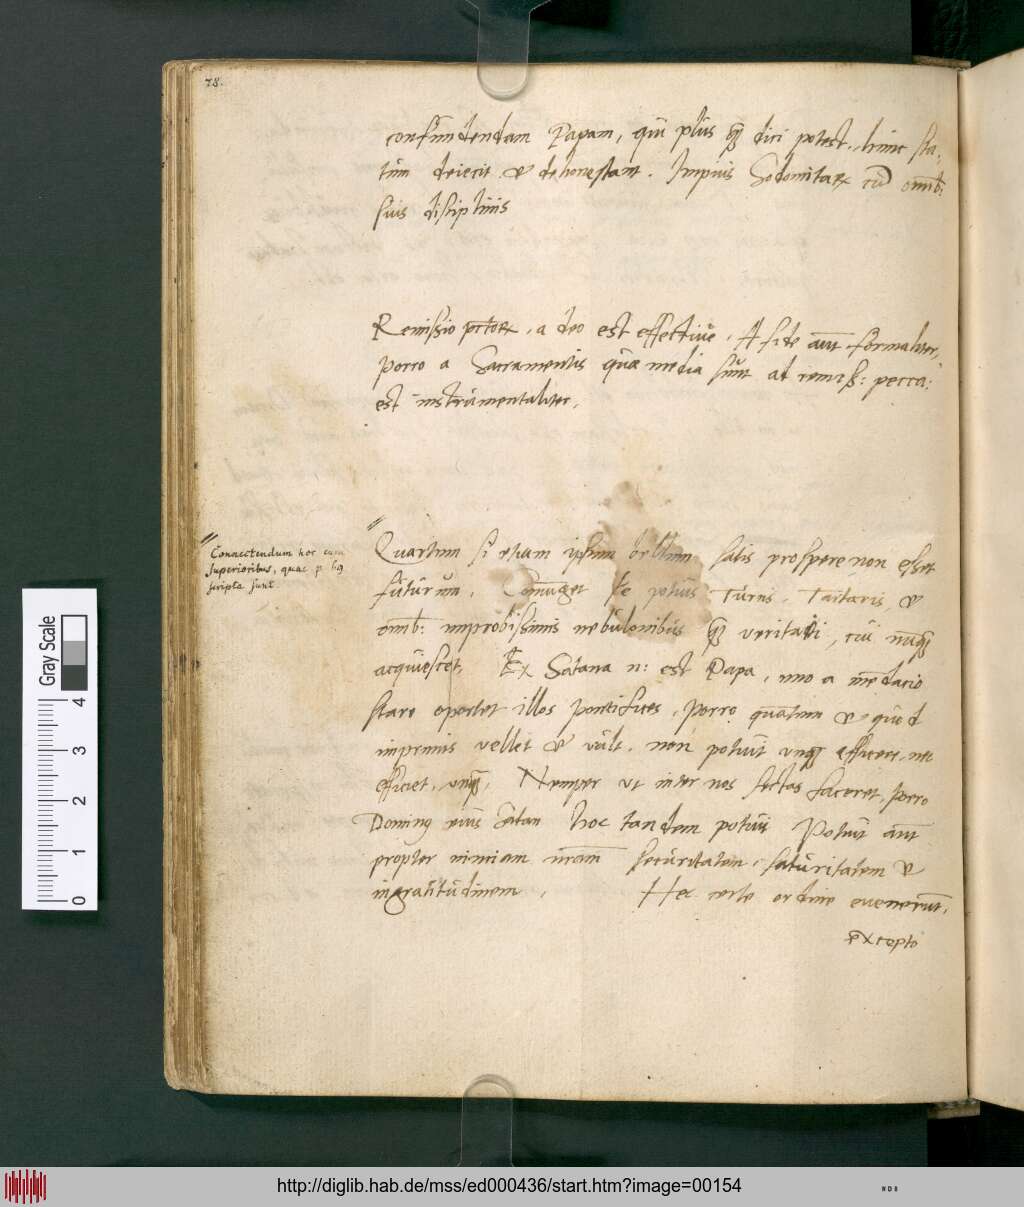 78.
confundendam Papam, qui plus dici potest, hunc sta:
tim deiecit et dehonestant. Impius Sodomitarum cum omnib:
suis discipulis
Remissio a deo est effective, A fide aut formaliter,
Porro a Sacramentis quae media sunt ad remiss: pecca:
est instrumentaliter.
Connectendum hoc cum
superioribus, quae p.
scripta sunt
Quartum si etiam ipsum bellum satis prospere non esset
futurum, se potius Turcis, Tartaris, et
omnib: improbissimis nebulonibus veritati, cui
acquiescet. Ex Satana n: est Papa, imo a mendacio
stare oportet illos pontifices, Porro quartum et quod
inprimis vellet et vult, non potuit unquam efficere, nec
efficiet, unquam, Nemper ut inter nos sectas faceret, porro
Dominus eius Satan hoc tandem potuit Potuit aut
propter nimiam nram securitatem, saturitatem et
ingratitudinem. Hec certe ordine evenerunt,
excepto
Gray Scale
0 1 2 3 4
http://diglib.hab.de/mss/ed000436/start.htm?image=00154